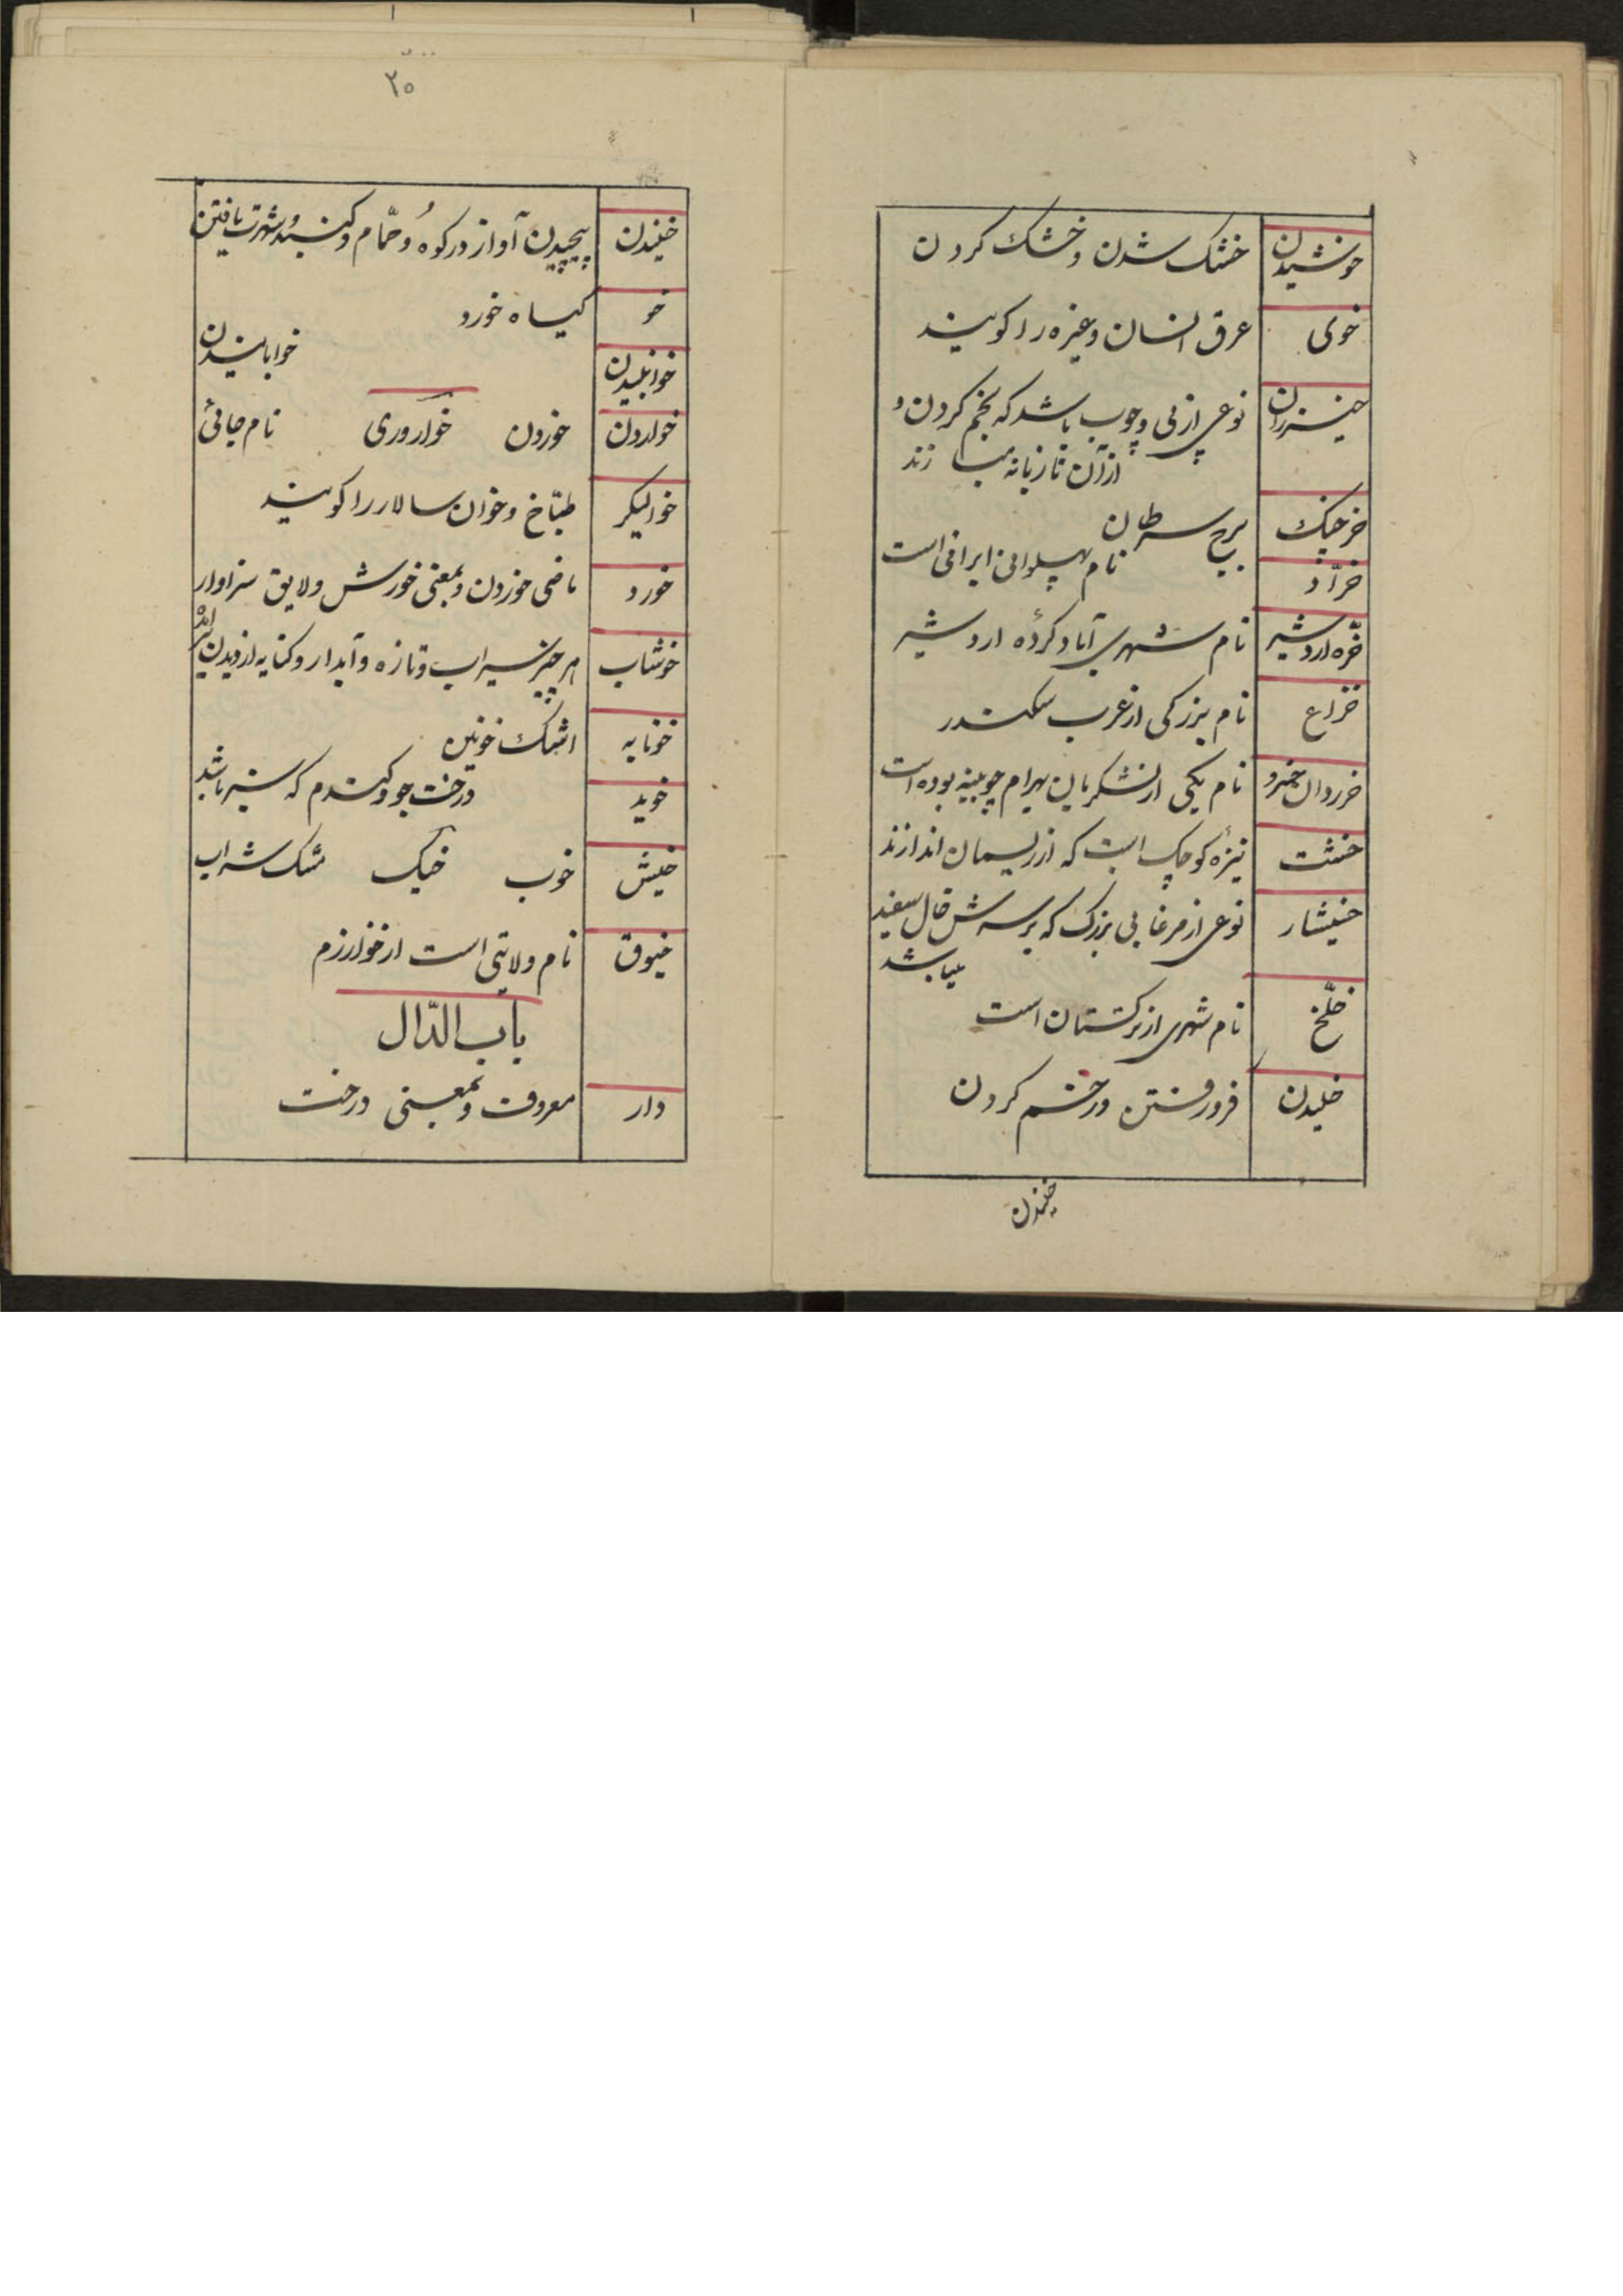 خوشیدن خشک شدن و خشک کردن
خوی عرق انسان و غیره را کویند
خیزران نوعی از نی و چوب باشد که بخم کردن و
از آن تازیانه میسازند
خرچنک برج سرطان
خرّاد نام پهلوانی ایرانی است
خرّه اردشیر نام شهری آباد کردهٔ اردشیر
خزاع نام بزرکی از عرب سکندر
خرردان خسرو نام یکی از لشکریان بهرام چوبینه بوده است
خشت نیزهٔ کوچک است که از ریسمان اندازند
خشیشار نوعی از مرغابی بزرک که بر سرش خال سفید
میباشد
خلّخ نام شهری از ترکستان است
خلیدن فرو رفتن و زخم کردن
خنیدن
۲۵
خنیدن پیچیدن آواز در کوه و حمّام و کنبد و شهرت یافتن
خو کیاه خورد
خوابنیدن خوابانیدن
خواردن خوردن خوارری نام جائی
خوالیکر طبّاخ و خوان سالار را کویند
خورد ماضی خوردن و بمعنی خورش و لایق سزاوار
خوشاب هر چیز سیراب و تازه و آبدار و کنایه از دیدن
خونابه اشک خونین
خوید درخت جو و کندم که سبز باشد
خیش خوب خیک مشک شراب
خیوق نام ولایتی است از خوارزم
باب الدّال
دار معروف و بمعنی درخت